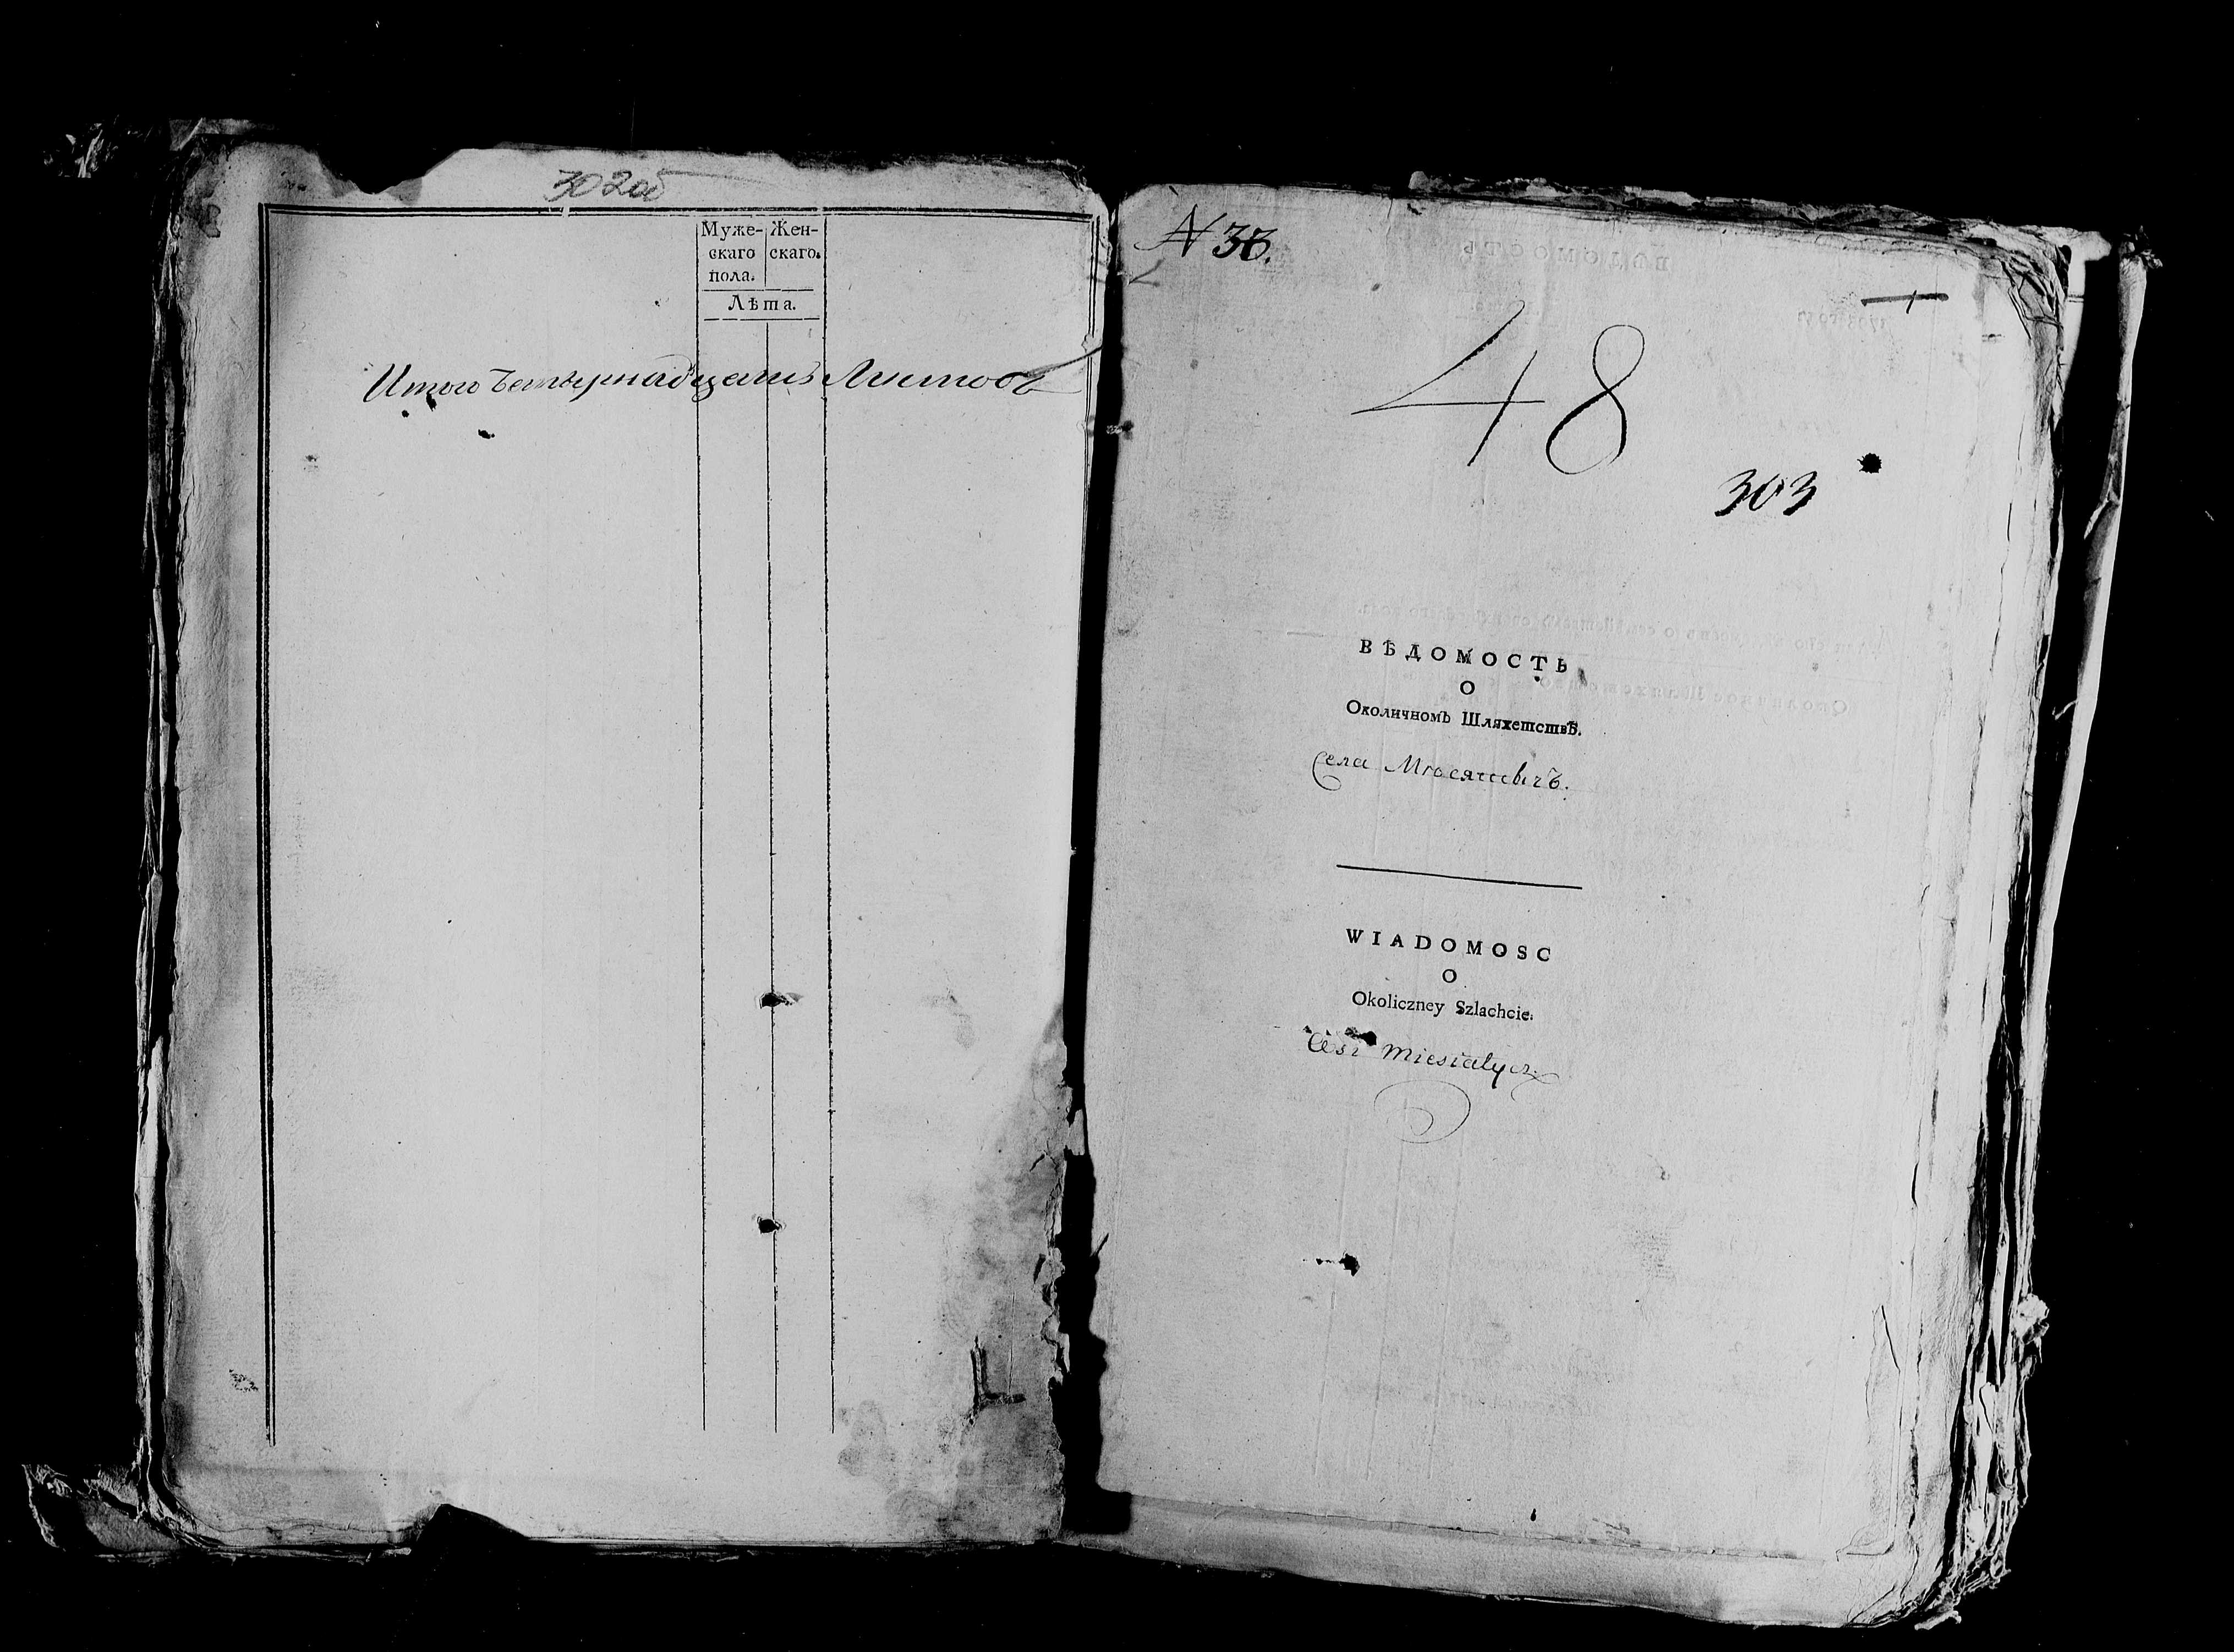 302об
Муже- Жен-
скаго скаго.
пола.
Лѣта.
Итого Четырнадцеть Листовъ
N 36.
48
303
ВѢДОМОСТЬ
О
Околичномъ Шляхетствѣ.
Села
WIADOMOSC
O
Okoliczney Szlachcie.
Wsi Miesiatycz